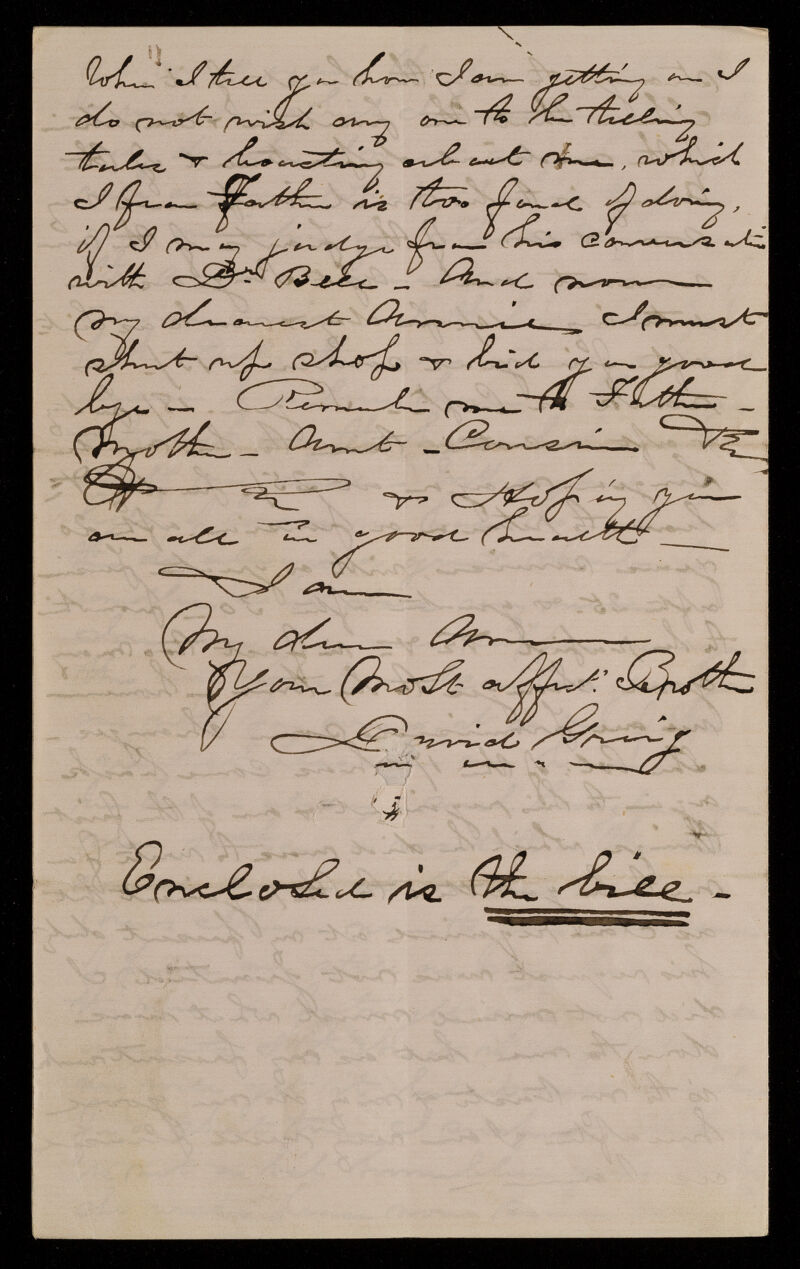 When I tell you how I am getting on I
do not wish any one to be telling
tales & boasting about me, which
I fear Father is too fond of doing,
if I may judge from his conversation
with Dr. Bell - And now
my dearest Annie I must
shut up shop & bid you good
bye - Remember me to Father -
Mother - Aunt - Cousin
& Hoping you
are all in good health -
I am
My dear Annie
Your Most affect. Brother
David Greig
Enclosed is the bill -